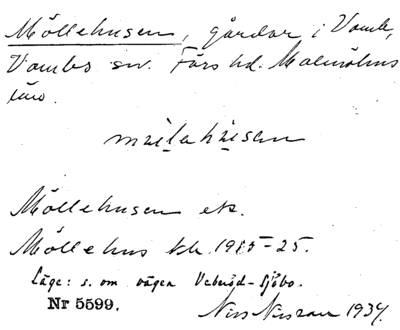 Möllehusen, gårdar i Vomb,
Vombs sn. Färs hd. Malmöhus
län.
Möllehusen ek.
Möllehus tk. 1915-25.
Läge: s. om vägen Veberöd-Sjöbo.
Nr 5599.
1934.